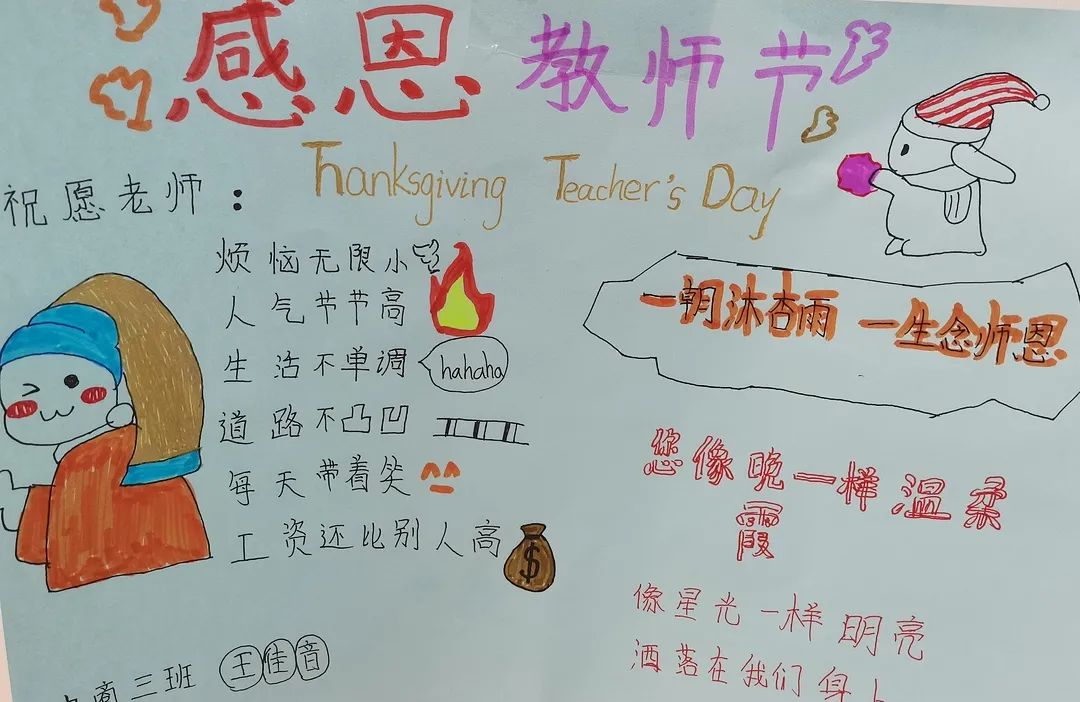 感恩教师节
Thanksgiving Teacher's Day
祝愿老师：
烦恼无限小
人气节节高
生活不单调
hahaha
道路不凸凹
每天带着笑
工资还比别人高
$
商三班 王佳音
一朝沐杏雨 一生念师恩
您像晚一样温柔
霞
像星光一样明亮
洒落在我们身上